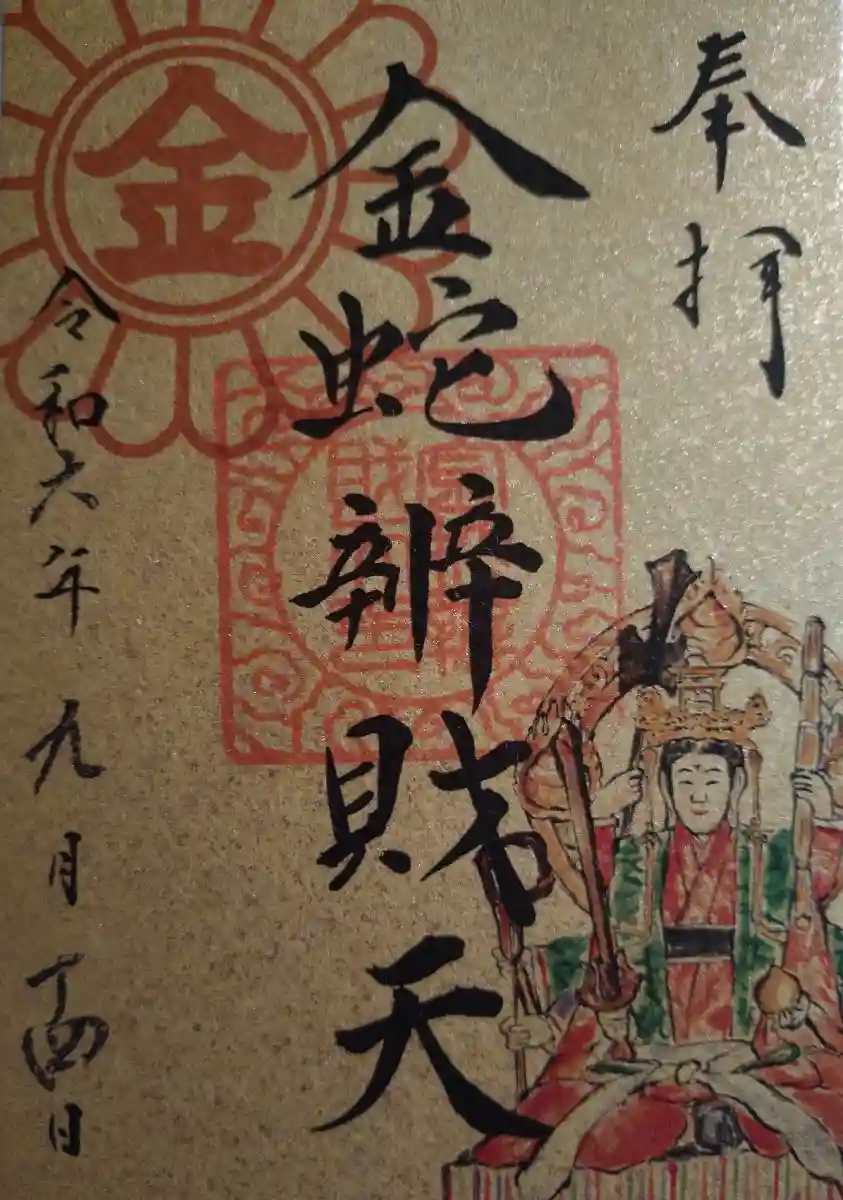 奉拝
金蛇辨財天
令和六年九月十四日
金